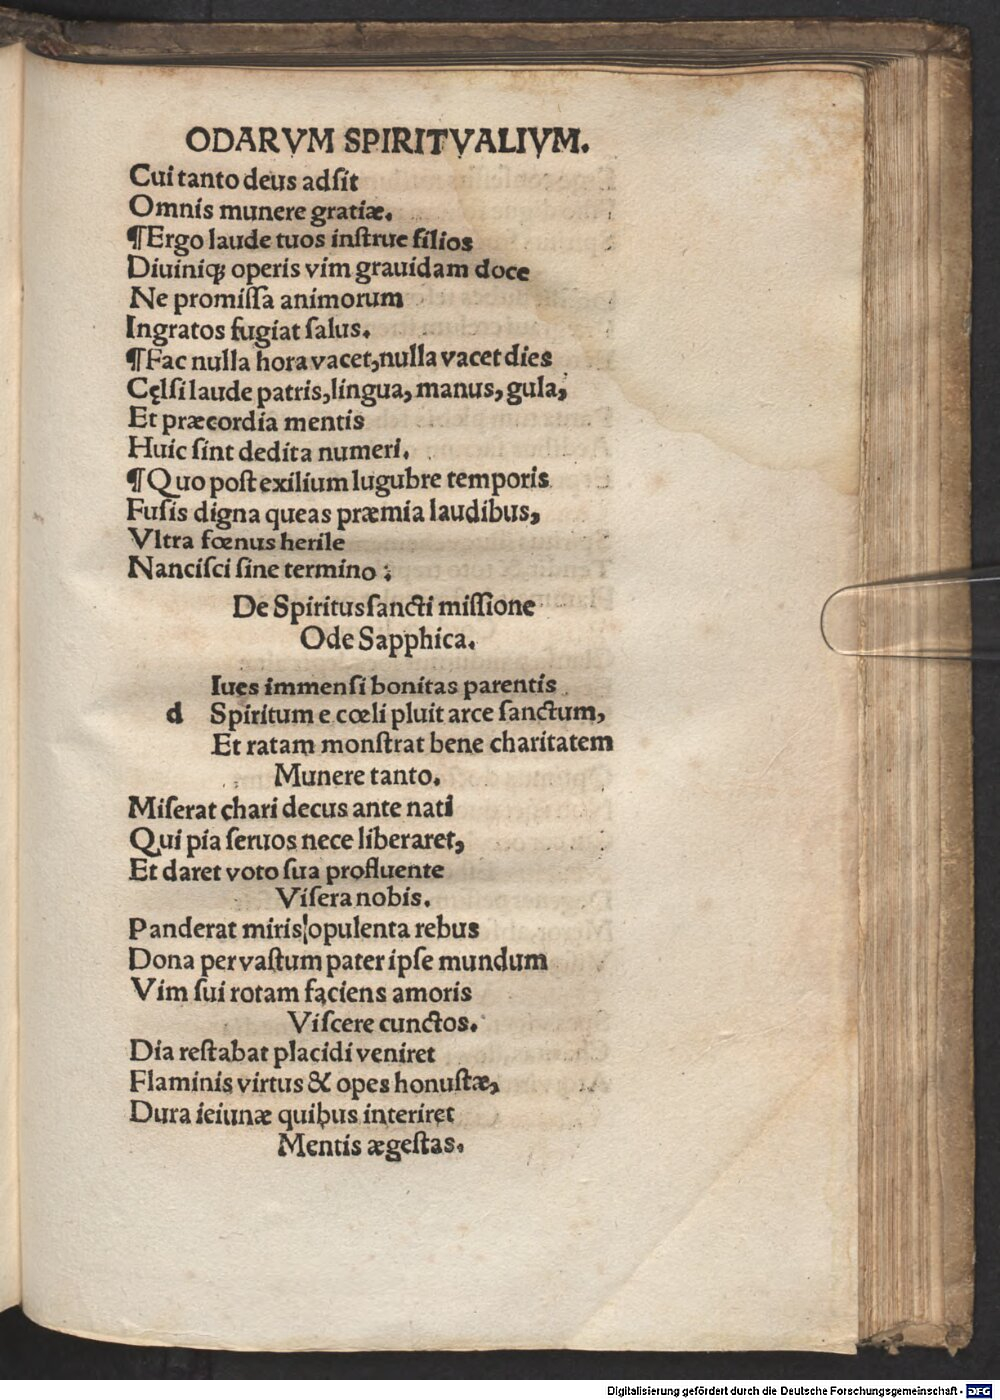 ODARVM SPIRITVALIVM.
Cui tanto deus adſit
Omnis munere gratiæ.
¶Ergo laude tuos inſtrue filios
Diuiniqꝫ operis vim grauidam doce
Ne promiſſa animorum
Ingratos fugiat ſalus.
¶Fac nulla hora vacet,nulla vacet dies
Cęlſi laude patris,lingua, manus, gula,
Et præcordia mentis
Huic ſint dedita numeri.
¶Quo poſt exilium lugubre temporis
Fuſis digna queas præmia laudibus,
Vltra fœnus herile
Nanciſci ſine termino:
De Spirituſſancti miſſione
Ode Sapphica.
Iues immenſi bonitas parentis
d Spiritum e cœli pluit arce ſanctum,
Et ratam monſtrat bene charitatem
Munere tanto.
Miſerat chari decus ante nati
Qui pia ſeruos nece liberaret,
Et daret voto ſua profluente
Viſera nobis.
Panderat miris opulenta rebus
Dona per vaſtum pater ipſe mundum
Vim ſui rotam faciens amoris
Viſcere cunctos.
Dia reſtabat placidi veniret
Flaminis virtus & opes honuſtæ,
Dura ieiunæ quibus interiret
Mentis ægeſtas.
Digitalisierung gefördert durch die Deutsche Forschungsgemeinschaft - DFG